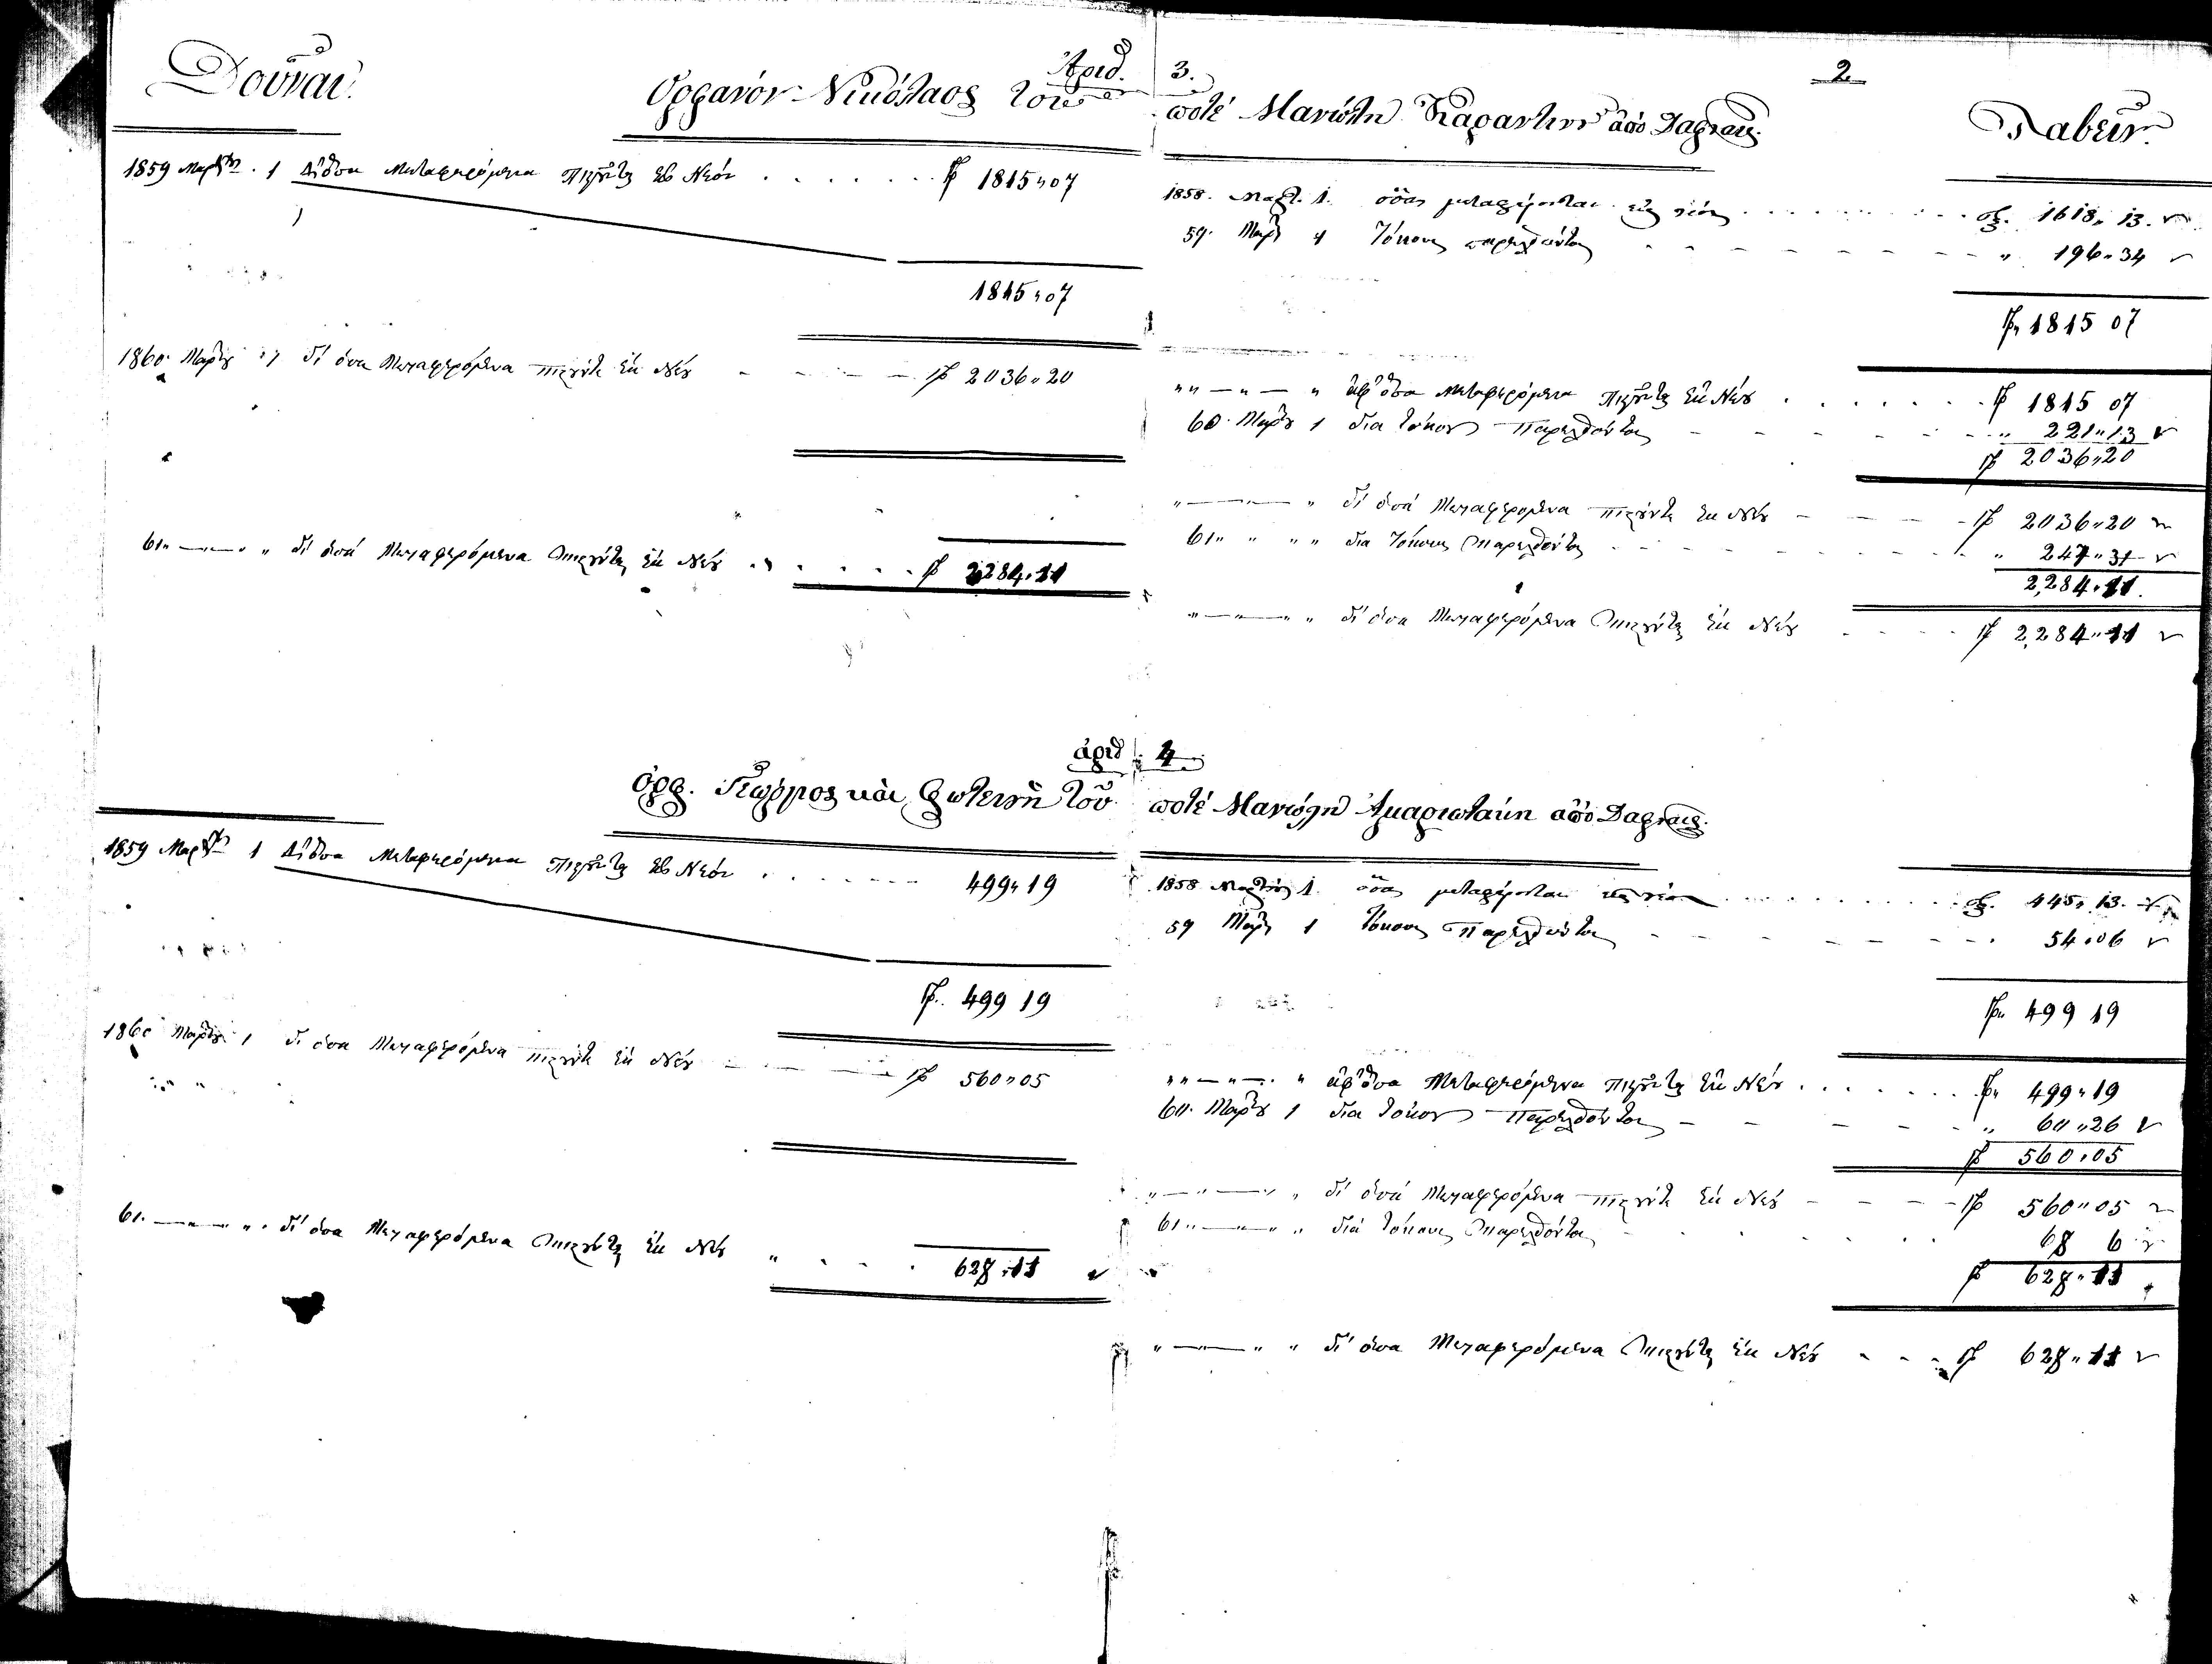 Δοῦναι.
Ἀριθ. 3.
2
Ὀρφανόν Νικόλαος τοῦ ποτέ Μανώλη Καραντινοῦ ἀπό Δαφναις.
Λαβεῖν.
1859 Μαρτίου 1 Δι' ὅσα Μεταφερόμενα πιστοῦται Εἰς Νέον . . . . . . . 1815 „ 07
1815 „ 07
1860 Μαρτίου 1 δι' ὅσα Μεταφερόμενα πιστοῦται Εἰς Νέον 2036 „ 20
61 „ — „ — „ „ δι' ὅσα Μεταφερόμενα πιστοῦται Εἰς Νέον . . . . . 2284 „ 11
1858. Μαρτ. 1. ὅσα μεταφέρονται εἰς νέον . . . . . . 1618 „ 13.
59. Μαρτ 1 Τόκους παρελθόντας „ 196 „ 34
1815 07
„ „ — „ — „ ἀφ' ὅσα Μεταφερόμενα πιστοῦται Εἰς Νέον . . . . . . . 1815 07
60. Μαρτίου 1 δια τόκους παρελθόντας „ 221 „ 13
2036 „ 20
„ — „ — „ δι' ὅσα Μεταφερόμενα πιστοῦται Εἰς Νέον 2036 „ 20
61 „ „ „ „ δια Τόκους παρελθόντας „ 247 „ 31
2,284 „ 11.
„ — „ — „ „ δι' ὅσα Μεταφερόμενα πιστοῦται Εἰς Νέον 2,284 „ 11
ἀριθ. 4
Ὀρφ. Γεώργιος και Φωτεινὴ τοῦ ποτέ Μανώλη Ἀμαριωτάκη ἀπό Δαφναις.
1859 Μαρτίου 1 Δι' ὅσα Μεταφερόμενα πιστοῦται Εἰς Νέον . . . . . . 499 „ 19
499 19
1860 Μαρτίου 1 δι' ὅσα Μεταφερόμενα πιστοῦται Εἰς Νέον 560 „ 05
61. — „ — „ „ δι' ὅσα Μεταφερόμενα πιστοῦται Εἰς Νέον „ . . . . 628 „ 11
1858 Μαρτίου 1. ὅσα μεταφέρονται εἰς νέον . . . . . . 445 „ 13.
59 Μαρτ 1 Τόκους παρελθόντας 54 „ 06
499 19
„ „ — „ — „ ἀφ' ὅσα Μεταφερόμενα πιστοῦται Εἰς Νέον . . . . . . 499 „ 19
60. Μαρτίου 1 δια τόκους παρελθόντας „ 60 „ 26
560 „ 05
„ — „ — „ „ δι' ὅσα Μεταφερόμενα πιστοῦται Εἰς Νέον 560 „ 05
61 „ — „ — „ „ διά τόκους παρελθόντας 68 6
628 „ 11
„ — „ — „ „ δι' ὅσα Μεταφερόμενα πιστοῦται Εἰς Νέον 628 „ 11